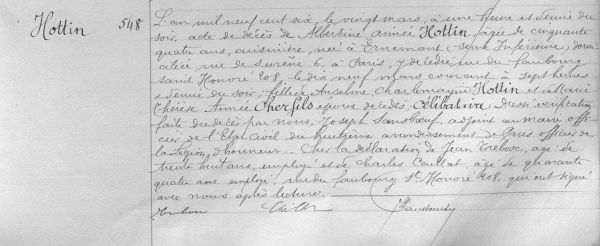 Hottin
548
L'an mil neuf cent six, le vingt mars, à une heure et demie du
soir, acte de décès de Albertine Aimée Hottin, âgée de cinquante
quatre ans, cuisinière, née à Ernemont (Seine Inférieure), domi-
ciliée rue de Surène 6, à Paris, y décédée, rue du faubourg
Saint Honoré 208, le dix neuf mars courant à sept heures
& demie du soir; fille de Anselme Charlemagne Hottin et de
Thérèse Aimée Cherfils époux décédés. Célibataire. Dressé vérification
faite du décès par nous, Joseph Sansboeuf, adjoint au maire offi-
cier de l'Etat Civil du huitième arrondissement de Paris officier de
la Légion d'honneur. Sur la déclaration de Jean Treboc, âgé de
trente huit ans, employé et de Charles Caillat, âgé de quarante
quatre ans, employé, rue du faubourg St Honoré 208, qui ont signé
avec nous après lecture.